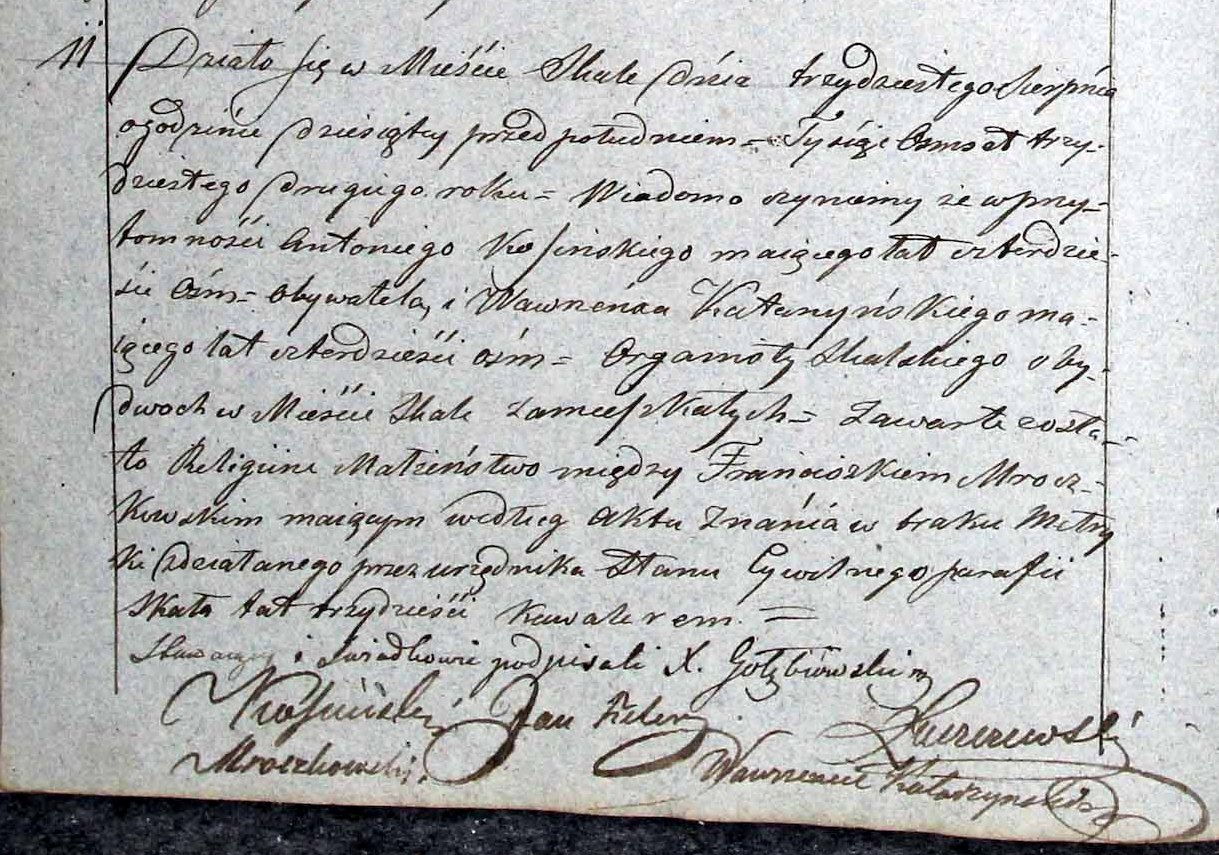 11 Działo się w Mieście Skale dnia trzydziestego Sierpnia
o godzinie dziesiątey przed południem = Tysiąc Osmset trzy-
dziestego drugiego roku = Wiadomo czyniemy że w przy-
tomności Antoniego Kosinskiego maiącego lat czterdzie-
ści Ośm = Obywatela, i Wawrzeńca Katarzyńskiego ma-
iącego lat czterdzieści ośm = Organisty Skalskiego oby-
dwoch w Mieście Skale zamieszkałych = Zawarte zosta-
ło Religiine Małżeństwo między Franciszkiem Mrocz-
kowskim maiącym według Aktu Znania w braku Metry
ki zdziałanego przez urzędnika Stanu Cywilnego parafii
Skała lat trzydzieści kawalerem =
Stawaiący i Swiadkowie podpisali X. Gołębiowski
Kosiński Jan
Mroczkowski Wawrzeniec Katarzynski